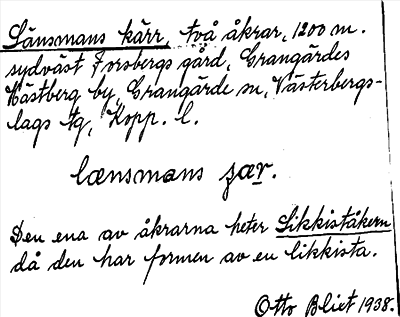 Länsmans kärr, två åkrar, 1200 m.
sydväst Forsbergs gård, Grangärdes
Västberg by, Grangärde sn, Västerbergs-
lags tg, Kopp. l.
lænsmans ɟær.
Den ena av åkrarna heter Likkiståkern
då den har formen av en likkista.
Otto Blixt 1938.